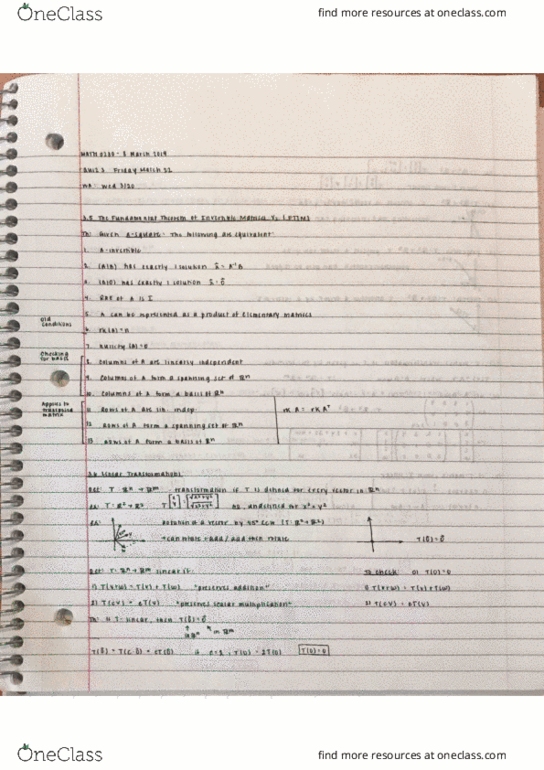 OneClass
find more resources at oneclass.com
MATH 0280 - 8 March 2019
Quiz 3 Friday March 22
HW: Wed 3/20
3.5 The Fundamental Theorem of Invertible Matrices
Th: Given A-square. The following are equivalent
1. A-invertible
2. (A|b) has exactly 1 solution
3. (A|0) has exactly 1 solution
4. RREF of A is I
5. A can be represented as a product of elementary matrices
Old conditions
6. rk(A)=n
7. nullity(A)=0
Checking for basis
8. Columns of A are linearly independent
9. Columns of A form a spanning set of ℝn
10. Columns of A form a basis of ℝn
Applies to transposed matrix
11. Rows of A are lin. indep.
rk A = rk Aᵀ
12. Rows of A form a spanning set of ℝn
13. Rows of A form a basis of ℝn
3.6 Linear Transformations
Def: T: ℝn → ℝm - transformation if T is defined for every vector in ℝn
ex: T: ℝ² → ℝ²
ex: Rotation of a vector by 45° (T: ℝ² → ℝ²)
*can rotate + add / add then rotate
T(0)=0
Def: T: ℝn → ℝm linear if:
To check: 0) T(0)=0
1) T(v+w) = T(v) + T(w) "preserves addition"
1) T(v+w) = T(v) + T(w)
2) T(cv) = cT(v) "preserves scalar multiplication"
2) T(cv) = cT(v)
Th: If T-linear, then T(0)=0
in ℝm
T(0) = T(c·0) = cT(0)
T(0) = 2T(0)
T(0)=0
OneClass
find more resources at oneclass.com